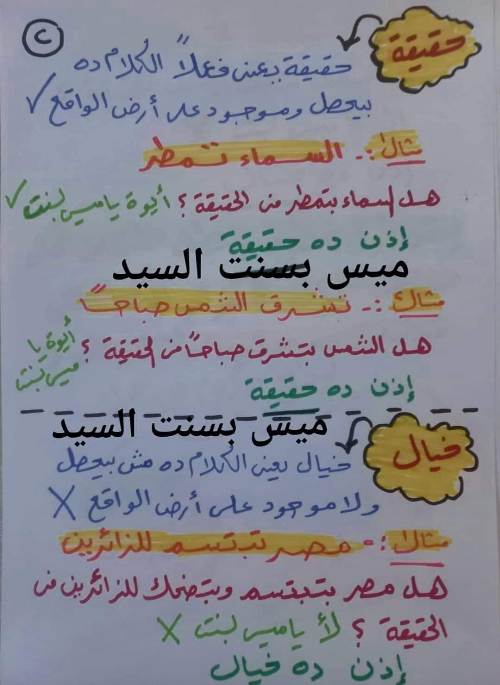 ٢
حقيقة
حقيقة يعنى فعلاً الكلام ده
بيحصل وموجود على أرض الواقع ✓
مثال :- السماء تمطر
هل السماء بتمطر فى الحقيقة ؟ أيوة يا ميس بسنت ✓
إذن ده حقيقة
ميس بسنت السيد
مثال :- تشرق الشمس صباحاً
هل الشمس بتشرق صباحاً فى الحقيقة ؟ أيوة يا ميس بسنت
إذن ده حقيقة
ميس بسنت السيد
خيال
خيال يعنى الكلام ده مش بيحصل
ولا موجود على أرض الواقع X
مثال :- مصر تبتسم للزائرين
هل مصر بتبتسم وبتضحك للزائرين فى
الحقيقة ؟ لأ يا ميس بسنت X
إذن ده خيال